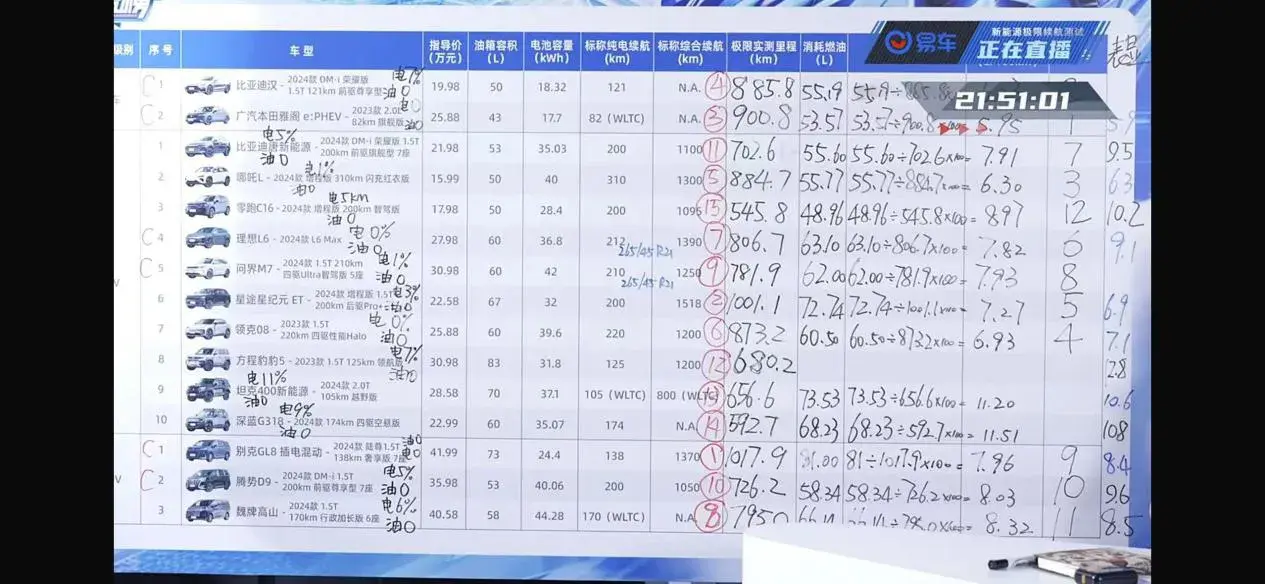 易车
新能源极限续航测试
正在直播
21:51:01
级别 序号 车型 指导价(万元) 油箱容积(L) 电池容量(kWh) 标称纯电续航(km) 标称综合续航(km) 极限实测里程(km) 消耗燃油(L)
C 1 比亚迪汉 - 2024款 DM-i 荣耀版 1.5T 121km 前驱尊享型 电7% 油0 19.98 50 18.32 121 N.A. ④ 885.8 55.9
C 2 广汽本田雅阁 e:PHEV - 2023款 2.0L 82km 旗舰版 电0 油0 25.88 43 17.7 82 (WLTC) N.A. ③ 900.8 53.57 53.57÷900.8×100= 5.95 1 5.9
1 比亚迪唐新能源 - 2024款 DM-i 荣耀版 1.5T 200km 前驱旗舰型 7座 电5% 油0 21.98 53 35.03 200 1100 ⑪ 702.6 55.60 55.60÷702.6×100= 7.91 7 9.5
2 哪吒L - 2024款 增程版 310km 闪充红衣版 电1% 油0 15.99 50 40 310 1300 ⑤ 884.7 55.77 55.77÷884.7×100= 6.30 3 6.3
3 零跑C16 - 2024款 增程版 200km 智驾版 电5km 油0 17.98 50 28.4 200 1095 ⑮ 545.8 48.96 48.96÷545.8×100= 8.97 12 10.2
C 4 理想L6 - 2024款 L6 Max 电0% 油0 27.98 60 36.8 212 265/45 R21 1390 ⑦ 806.7 63.10 63.10÷806.7×100= 7.82 6 9.1
C 5 问界M7 - 2024款 1.5T 210km 四驱Ultra智驾版 5座 电1% 油0 30.98 60 42 210 265/45 R21 1250 ⑨ 781.9 62.00 62.00÷781.9×100= 7.93 8
6 星途星纪元 ET - 2024款 增程版 1.5T 200km 后驱Pro+ 电3% 油0 22.58 67 32 200 1518 ② 1001.1 72.74 72.74÷1001.1×100= 7.27 5 6.9
7 领克08 - 2023款 1.5T 220km 四驱性能Halo 电0% 油0 25.88 60 39.6 220 1200 ⑥ 873.2 60.50 60.50÷873.2×100= 6.93 4 7.1
8 方程豹豹5 - 2023款 1.5T 125km 领航版 电7% 油0 30.98 83 31.8 125 1200 ⑫ 680.2 12.8
9 坦克400新能源 - 2024款 2.0T 105km 越野版 电11% 油0 28.58 70 37.1 105 (WLTC) 800 (WLTC) ⑬ 656.6 73.53 73.53÷656.6×100= 11.20 10.6
10 深蓝G318 - 2024款 174km 四驱空悬版 电9% 油0 22.99 60 35.07 174 N.A. ⑭ 592.7 68.23 68.23÷592.7×100= 11.51 10.8
C 1 别克GL8 插电混动 - 2024款 陆尊1.5T 138km 奢享版 7座 油0 电0 41.99 73 24.4 138 1370 ① 1017.9 81.00 81÷1017.9×100= 7.96 9 8.4
C 2 腾势D9 - 2024款 DM-i 1.5T 200km 前驱尊享型 7座 电5% 油0 35.98 53 40.06 200 1050 ⑩ 726.2 58.34 58.34÷726.2×100= 8.03 10 9.6
3 魏牌高山 - 2024款 1.5T 170km 行政加长版 6座 电6% 油0 40.58 58 44.28 170 (WLTC) N.A. ⑧ 795.0 8.32 11 8.5